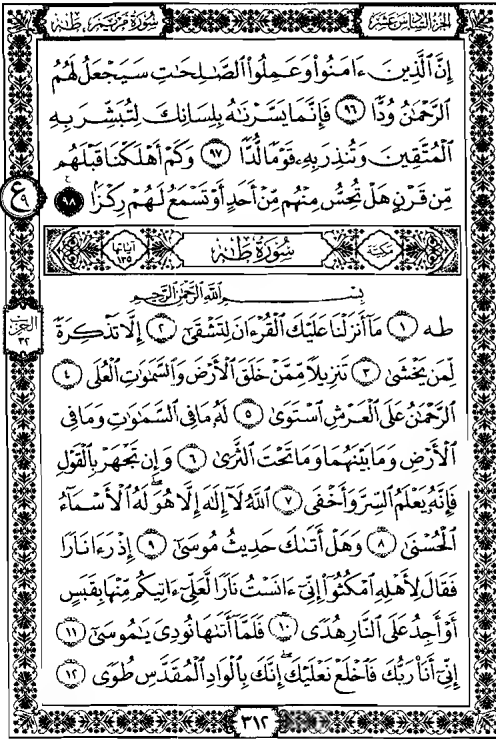 الجزء السادس عشر
سورة مريم ، طه
إِنَّ ٱلَّذِينَ ءَامَنُوا۟ وَعَمِلُوا۟ ٱلصَّٰلِحَٰتِ سَيَجْعَلُ لَهُمُ
ٱلرَّحْمَٰنُ وُدًّا ٩٦ فَإِنَّمَا يَسَّرْنَٰهُ بِلِسَانِكَ لِتُبَشِّرَ بِهِ
ٱلْمُتَّقِينَ وَتُنذِرَ بِهِۦ قَوْمًا لُّدًّا ٩٧ وَكَمْ أَهْلَكْنَا قَبْلَهُم
مِّن قَرْنٍ هَلْ تُحِسُّ مِنْهُم مِّنْ أَحَدٍ أَوْ تَسْمَعُ لَهُمْ رِكْزًۢا ٩٨
ع ٩
مكية
سُورَةُ طه
آياتها ١٣٥
بِسْمِ ٱللَّهِ ٱلرَّحْمَٰنِ ٱلرَّحِيمِ
الحزب ٣٢
طه ١ مَآ أَنزَلْنَا عَلَيْكَ ٱلْقُرْءَانَ لِتَشْقَىٰٓ ٢ إِلَّا تَذْكِرَةً
لِّمَن يَخْشَىٰ ٣ تَنزِيلًا مِّمَّنْ خَلَقَ ٱلْأَرْضَ وَٱلسَّمَٰوَٰتِ ٱلْعُلَى ٤
ٱلرَّحْمَٰنُ عَلَى ٱلْعَرْشِ ٱسْتَوَىٰ ٥ لَهُۥ مَا فِى ٱلسَّمَٰوَٰتِ وَمَا فِى
ٱلْأَرْضِ وَمَا بَيْنَهُمَا وَمَا تَحْتَ ٱلثَّرَىٰ ٦ وَإِن تَجْهَرْ بِٱلْقَوْلِ
فَإِنَّهُۥ يَعْلَمُ ٱلسِّرَّ وَأَخْفَى ٧ ٱللَّهُ لَآ إِلَٰهَ إِلَّا هُوَ ۖ لَهُ ٱلْأَسْمَآءُ
ٱلْحُسْنَىٰ ٨ وَهَلْ أَتَىٰكَ حَدِيثُ مُوسَىٰٓ ٩ إِذْ رَءَا نَارًا
فَقَالَ لِأَهْلِهِ ٱمْكُثُوٓا۟ إِنِّىٓ ءَانَسْتُ نَارًا لَّعَلِّىٓ ءَاتِيكُم مِّنْهَا بِقَبَسٍ
أَوْ أَجِدُ عَلَى ٱلنَّارِ هُدًى ١٠ فَلَمَّآ أَتَىٰهَا نُودِىَ يَٰمُوسَىٰٓ ١١
إِنِّىٓ أَنَا۠ رَبُّكَ فَٱخْلَعْ نَعْلَيْكَ ۖ إِنَّكَ بِٱلْوَادِ ٱلْمُقَدَّسِ طُوًى ١٢
٣١٢